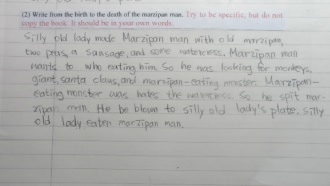 (2) Write from the birth to the death of the marzipan man. Try to be specific, but do not
copy the book. It should be in your own words.
Silly old lady made Marzipan man with old marzipan,
two peas, a sausage, and some watercress. Marzipan man
wants to who eating him. So he was looking for monkeys,
giant, santa claus, and marzipan-eating monster. Marzipan-
eating monster was hates the watercress. So he spit mar-
zipan man. He be blown to silly old lady's plate. Silly
old lady eaten marzipan man.